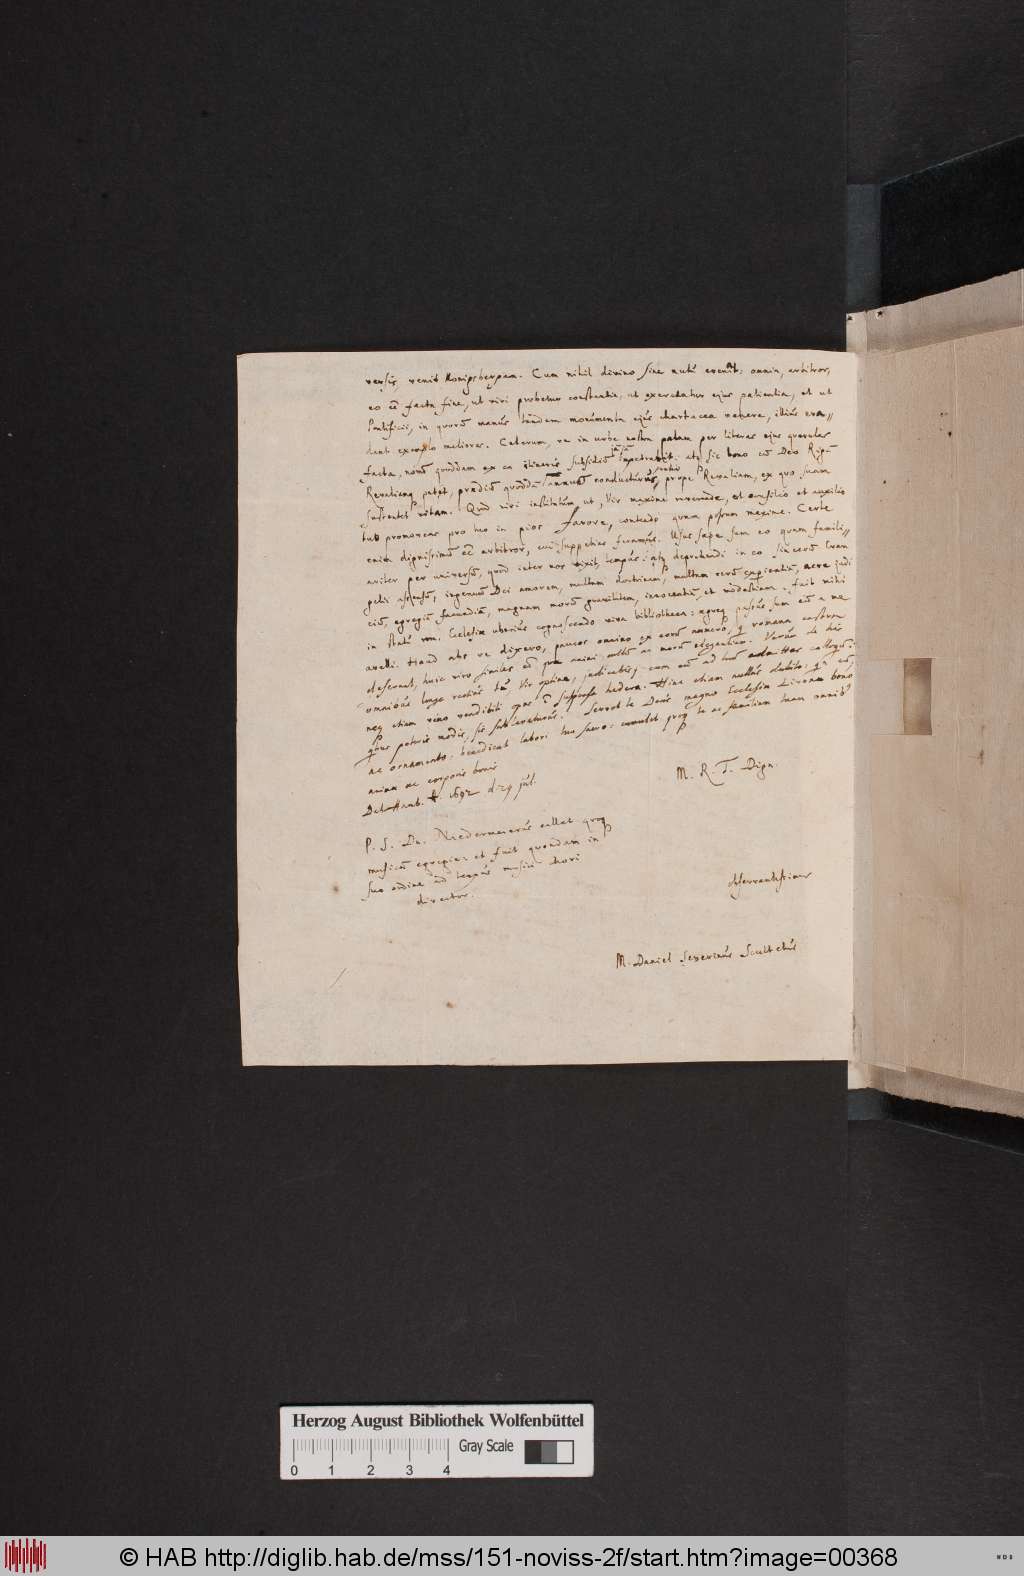 versus, venit Konigsbergam. Cum nihil divino sine nutu evenit: omnia, arbitror,
eo eē facta fine, ut viri probetur constantia, ut exerceatur ejus patientia, et ut
Pontificii, in quorū manus tandem monumenta ejus chartacea venere, illius eva//
dant exemplo meliores. Ceterum, re in urbe nostra palam per literas ejus querulas
facta, novū quoddam ex ea itineris subsidiū impetravit: atq sic bono cū Deo
prædiū quoddā annuū conducturus, prope Revaliam, ex quo suam
sustentet vitam. Quod viri institutum, ut, Vir maxime reverende, et consilio et auxilio
tuo promoveas pro tuo in pios favore, contendo quam possum maxime. Certe
enim dignissimus eē arbitror, cui suppetias feramus. Usus sæpe sum eo quam famili//
ariter per universū, quod inter nos vixit, tempus: atq deprehendi in eo sincerū Evan
gelii assensū, ingenuum Dei amorem, multam doctrinam, multam rerū experientiam, acre judi
ciū, egregiā facundiā, magnam morū gravitatem, innocentiā, et modestiam. fuit mihi
in statu Ecclesiæ uberius cognoscendo viva bibliotheca: ægreq passus sum eū a me
avelli. Haud abs re dixero, paucos omnino ex eorū numero, q romana castra
deserunt, huic viro similes
omnibus longe rectius tu, Vir optime, judicabis, cum eū ad tuū admittas colloquiū:
neq etiam vino vendibili opus ē suspensa hedera. Hinc etiam nullus dubito, eū,
quibus poteris modis, sis sublevaturus. Servet te Deus magno Ecclesiæ Livonæ bono
ac ornamento: benedicat labori tuo sacro: te ac familiam tuam omnib
animæ ac corporis bonis
Dab. Hamb. A. 1692 d. 29 Jul.
M. R. T. Dign.
P. S. Dn. Niedermeierus callet quoq
musicā egregie: et fuit quondam in
suo ordine ad tempus musici chori
director.
observantissimus
M. Daniel Severinus Scultetus
Herzog August Bibliothek Wolfenbüttel
Gray Scale
0 1 2 3 4
© HAB http://diglib.hab.de/mss/151-noviss-2f/start.htm?image=00368